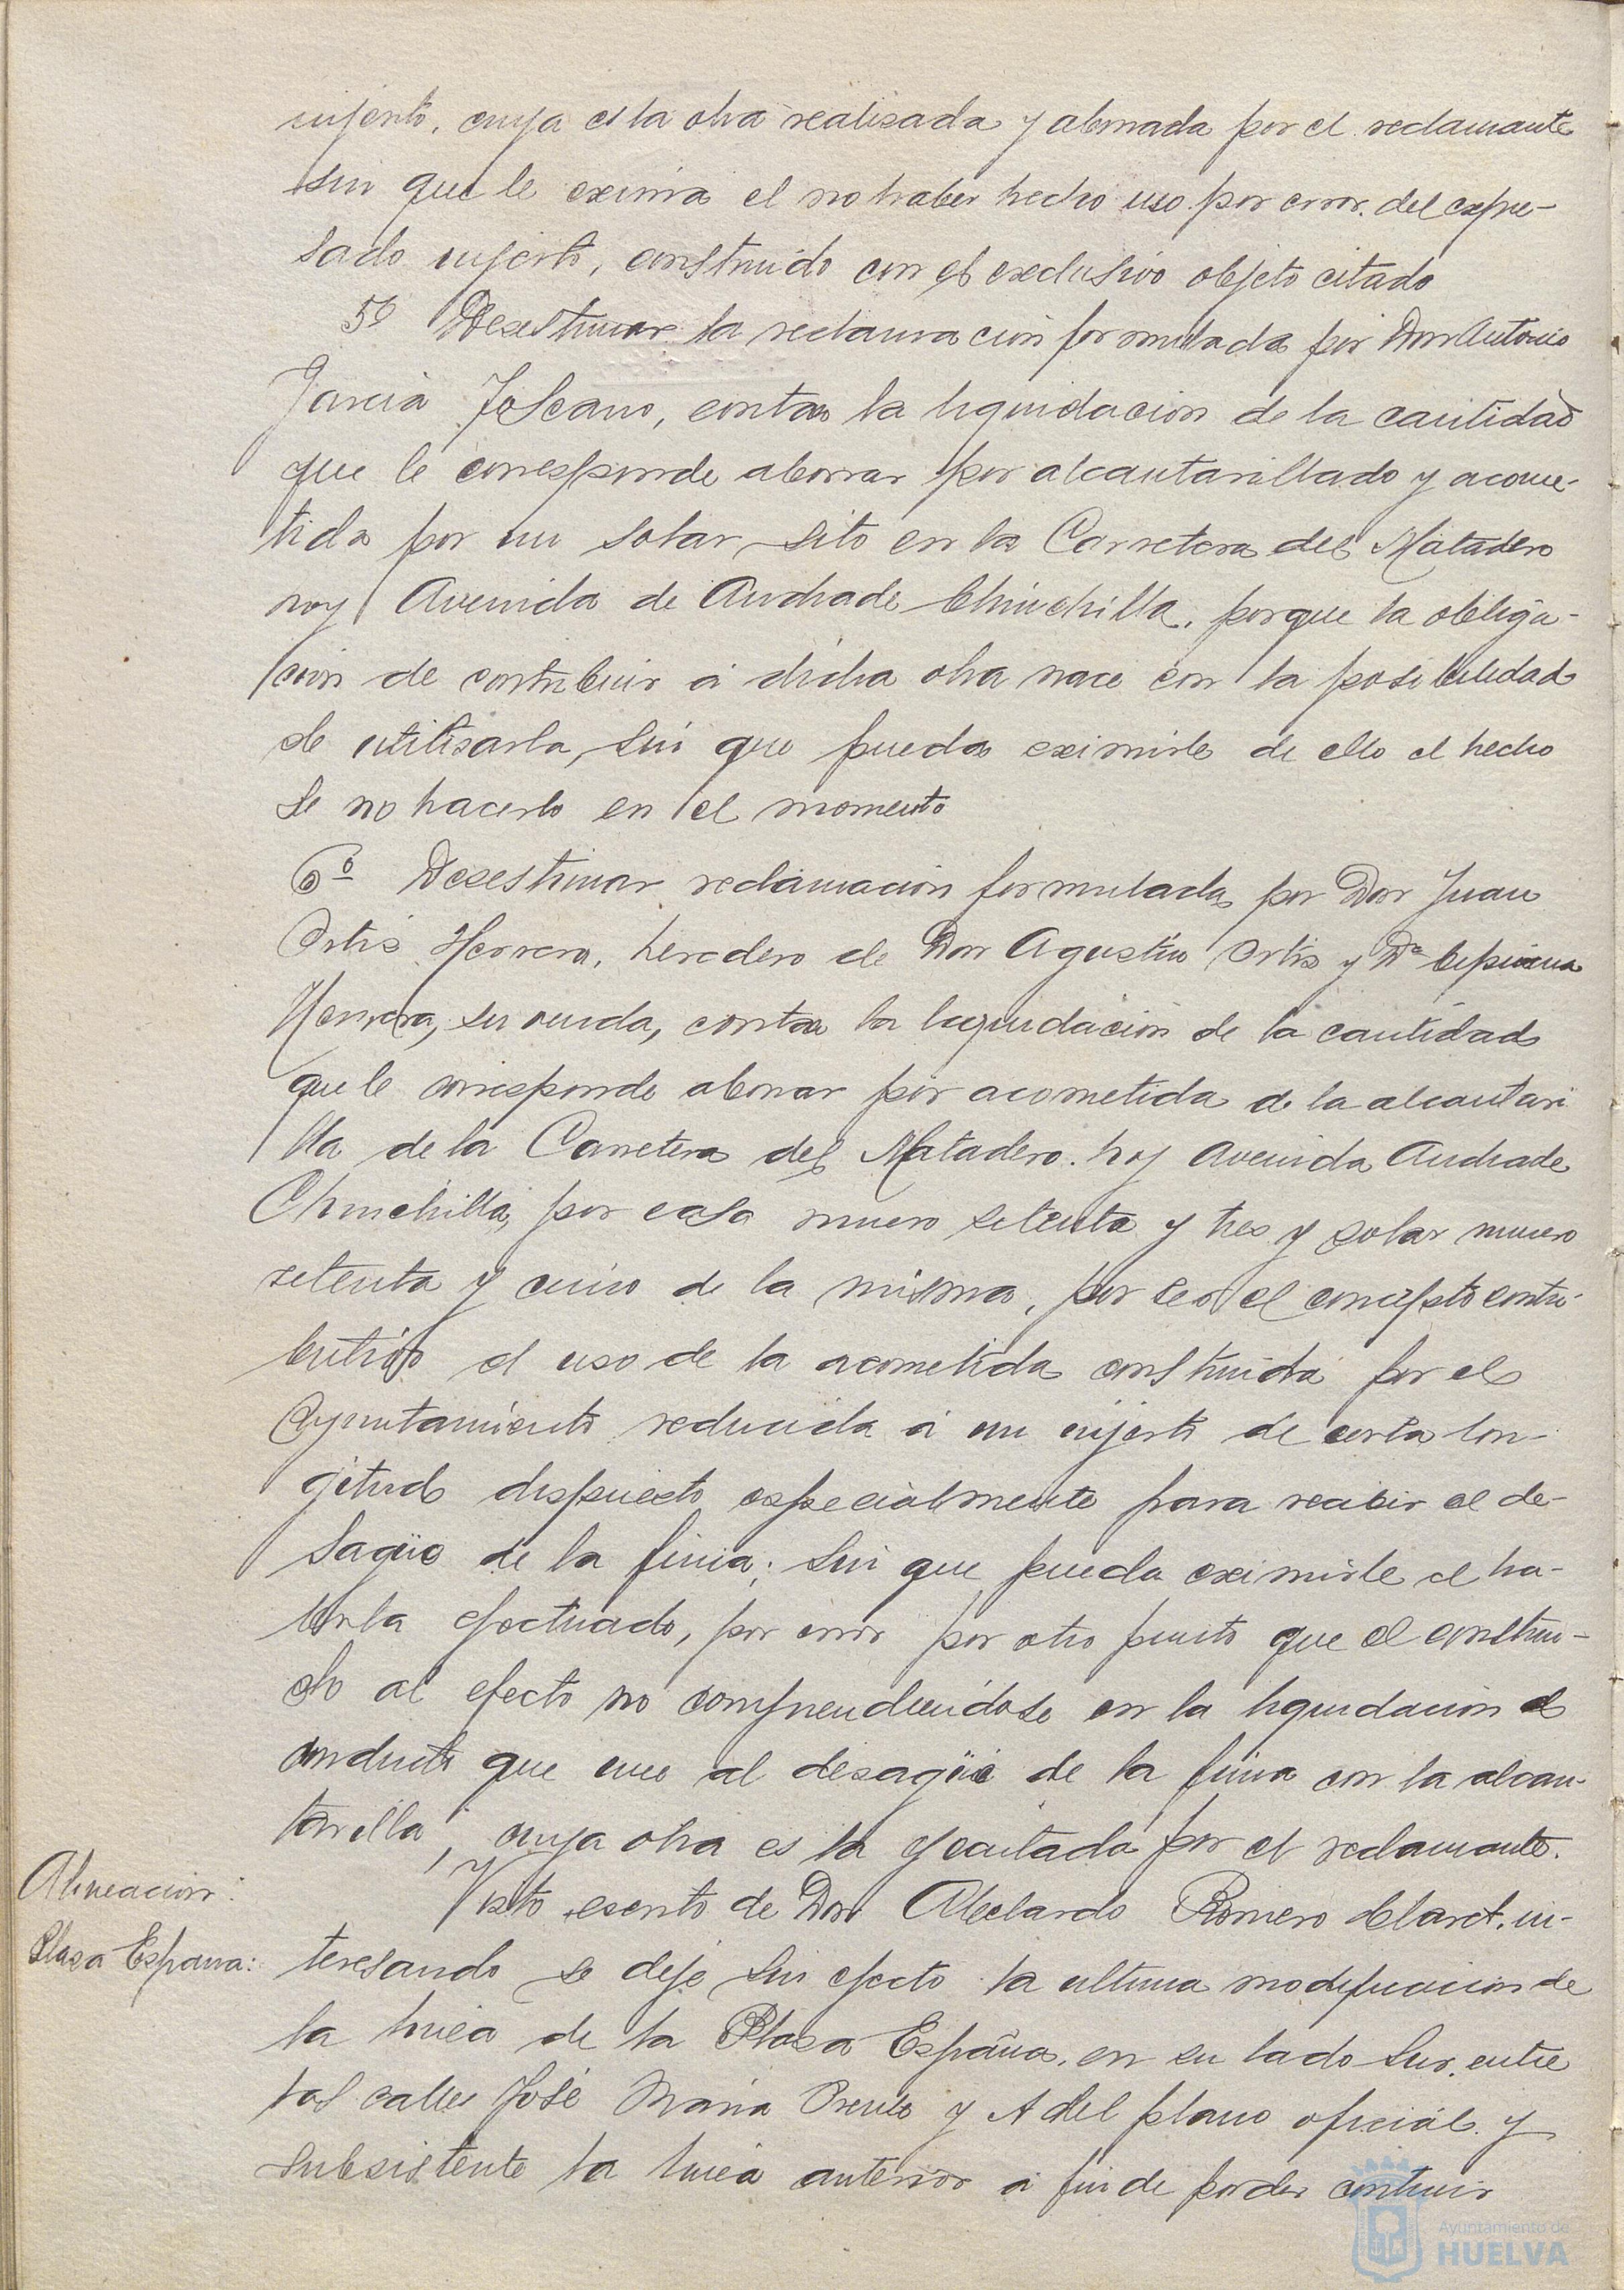 injerto, cuya es la obra realisada y abonada por el reclamante
sin que le exima el no haber hecho uso por error del expre-
sado injerto, construido con el exclusivo objeto citado
5º Desestimar la reclamacion formulada por Don Antonio
Garcia Toscano, contra la liquidacion de la cantidad
que le corresponde abonar por alcantarillado y acome-
tida por un solar sito en la Carretera del Matadero
hoy Avenida de Andrade Chinchilla, porque la obliga-
cion de contribuir á dicha obra nace con la posibilidad
de utilisarla, sin que pueda eximirle de ello el hecho
de no hacerlo en el momento
6º Desestimar reclamacion formulada por Don Juan
Ortis Herrera, heredero de Don Agustin Ortis y Dª
Herrera, su viuda, contra la liquidacion de la cantidad
que le corresponde abonar por acometida de la alcantari
lla de la Carretera del Matadero. hoy Avenida Andrade
Chinchilla, por casa numero setenta y tres y solar numero
setenta y cinco de la misma, por ser el concepto contri-
butivo el uso de la acometida construida por el
Ayuntamiento reducida á un injerto de corta lon-
gitud dispuesto especialmente para recibir el de-
sagüe de la finca; sin que pueda eximirle el ha-
berla efectuado, por error por otro punto que el construi-
do al efecto no comprendiendose en la liquidacion el
conducto que une al desagüe de la finca con la alcan-
tarilla, cuya obra es la ejecutada por el reclamante.
Alineacion: Visto escrito de Don Abelardo Romero Claret, in-
Plasa España: teresando se deje sin efecto la ultima modificacion de
la linea de la Plasa España, en su lado Sur, entre
las calles José Maria y A del plano oficial y
subsistente la linea anterior á fin de poder contruir
Ayuntamiento de
HUELVA